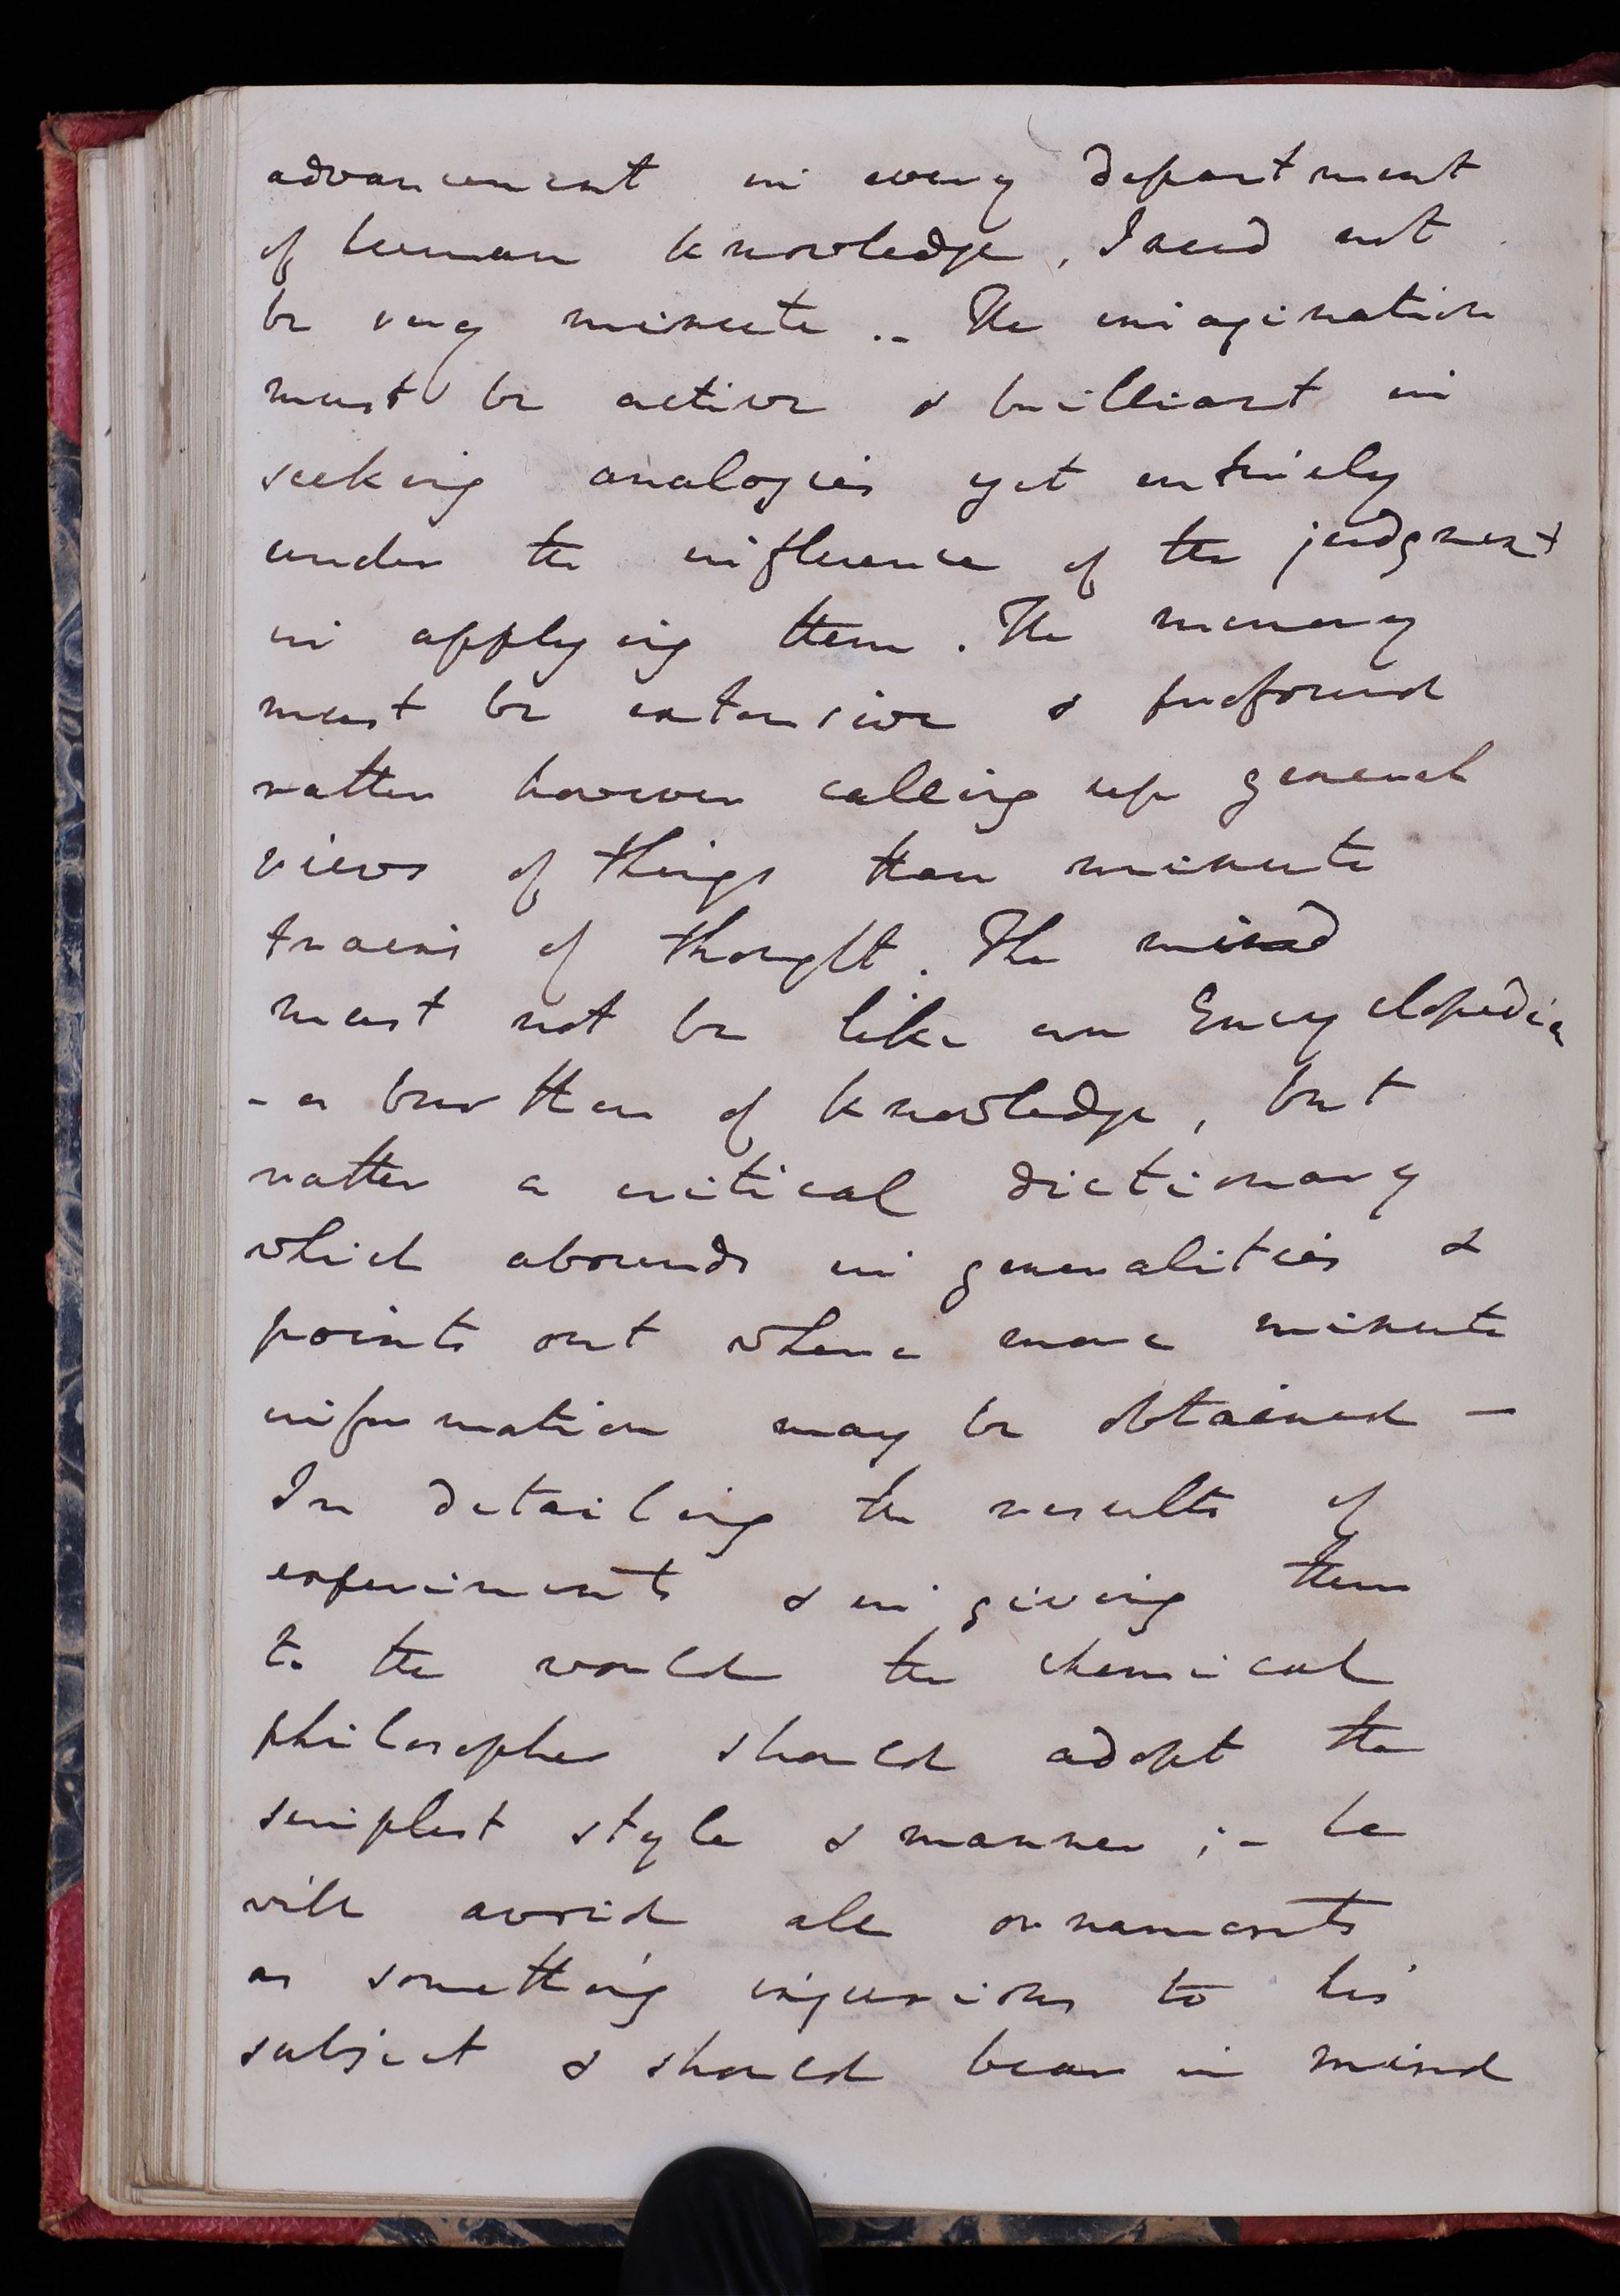 advancement in every department
of human knowledge, I need not
be very minute .- The imagination
must be active & brilliant in
seeking analogies yet entirely
under the influence of the judgment
in applying them. The memory
must be extensive & profound
rather however calling up general
views of things than minute
trains of thought. The mind
must not be like an Encyclopedia
- a burthen of knowledge, but
rather a critical dictionary
which abounds in generalities &
points out where more minute
information may be obtained -
In detailing the results of
experiments & in giving them
to the world the chemical
philosopher should adopt the
simplest style & manner ;- he
will avoid all ornaments
as something injurious to his
subject & should bear in mind